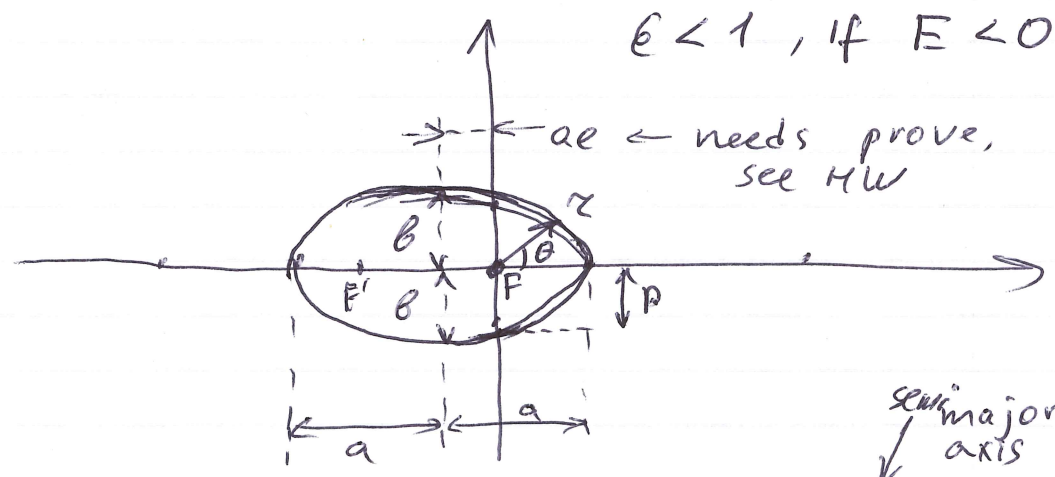 ϵ < 1 , if E < 0
ae ← needs prove,
see HW
r
b
θ
F'
b
F
p
a
a
semimajor
axis